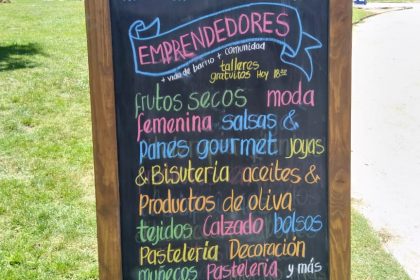 EMPRENDEDORES
+ vida de barrio + comunidad
talleres
gratuitos Hoy 18:30
frutos secos moda
femenina salsas &
panes gourmet joyas
& Bisutería aceites &
Productos de oliva
tejidos Calzado bolsos
Pastelería Decoración
muñecos Pastelería y más